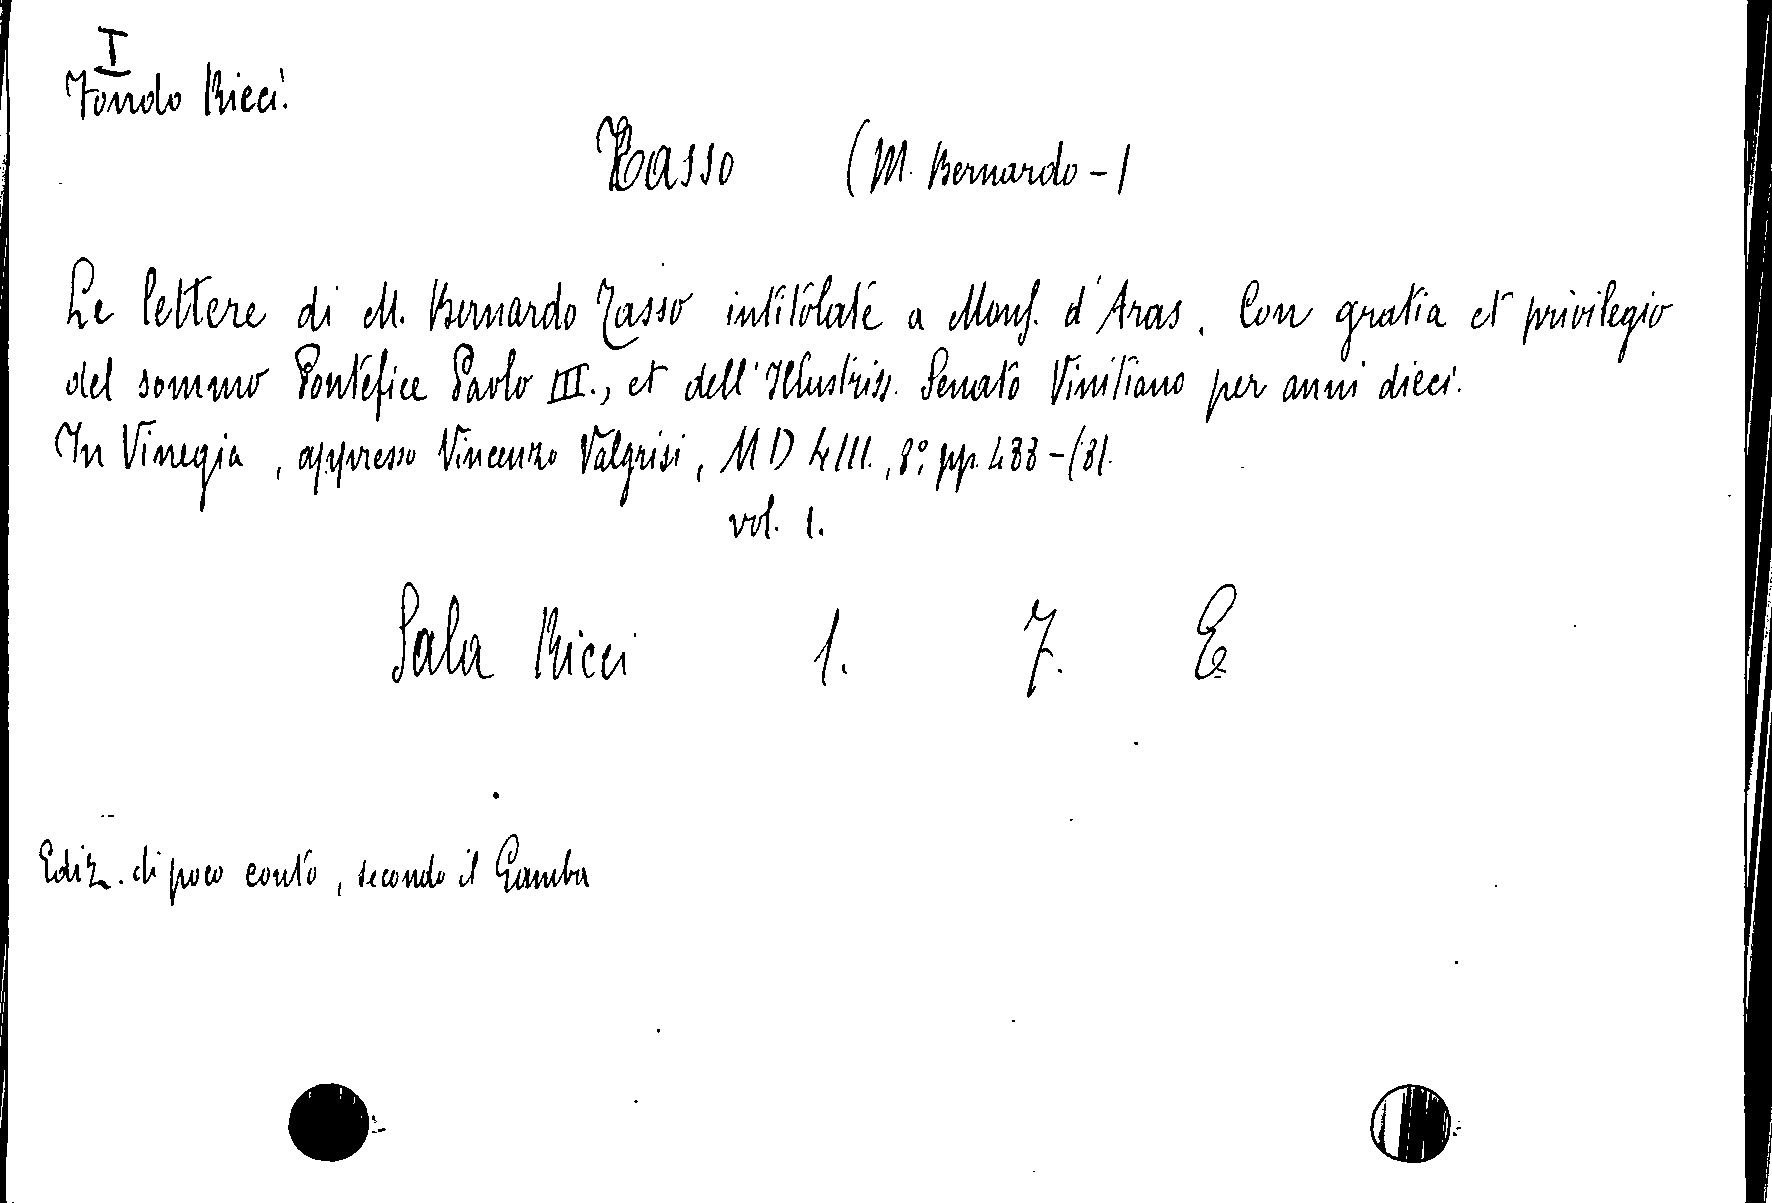 I
Fondo Ricci.
Tasso (M. Bernardo -)
Le lettere di M. Bernardo Tasso intitolate a Mons. d'Aras. Con gratia et privilegio
del sommo Pontefice Paolo III., et dell'Illustriss. Senato Vinitiano per anni dieci.
In Vinegia, appresso Vincenzo Valgrisi, MD LIII., 8° pp. 488-(8).
vol. 1.
Sala Ricci 1. 7. E
Ediz. di poco conto, secondo il Gamba